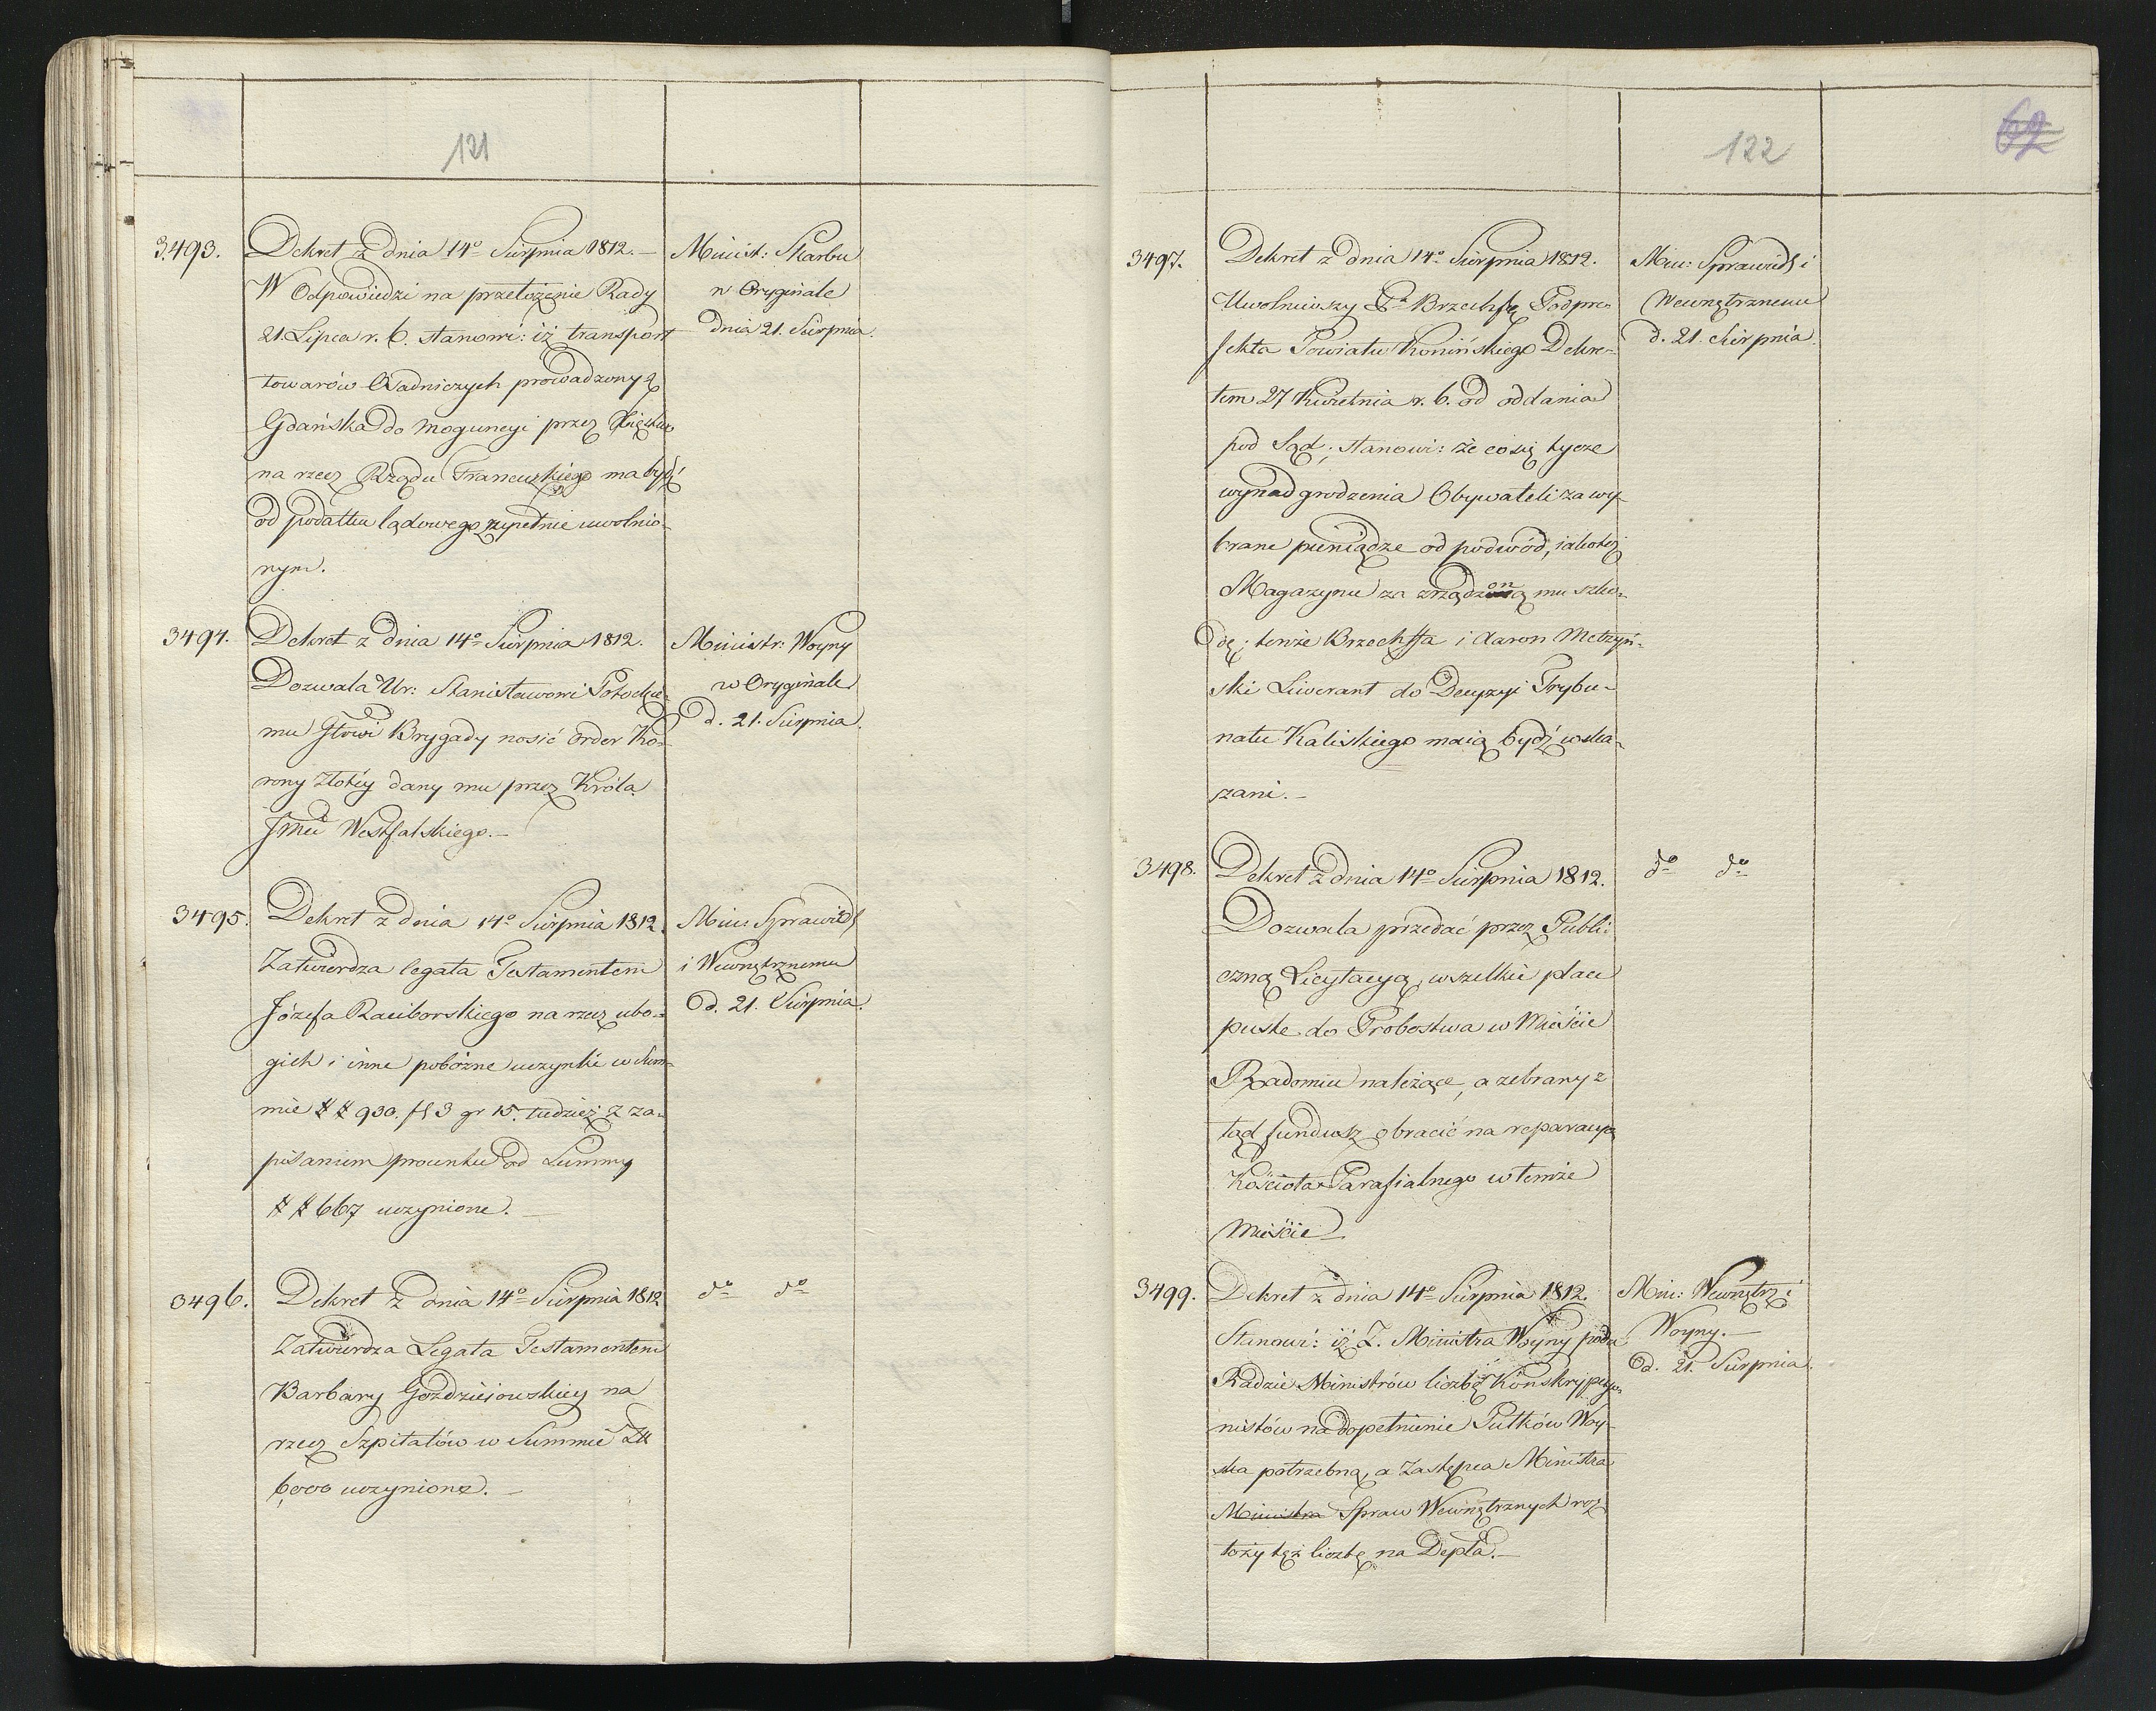 121
3493.
Dekret z dnia 14º Sierpnia 1812. —
W Odpowiedzi na przełożenie Rady
21. Lipca r. b. stanowi: iż transport
towarów Osadniczych prowadzony z
Gdańska do Moguncyi przez Xięstwo
na rzecz Rządu Francuzkiego ma bydź
od podatku lądowego zupełnie uwolnio-
nym.
Minist: Skarbu
w Oryginale
dnia 21. Sierpnia.
3494.
Dekret z dnia 14º Sierpnia 1812.
Dozwala Ur: Stanisławowi Potockie-
mu Jłowi Brygady nosić Order Ko-
rony Złotéy dany mu przez Króla
Jmci Westfalskiego. —
Ministr: Woyny
w Oryginale
d. 21. Sierpnia.
3495.
Dekret z dnia 14º Sierpnia 1812.
Zatwierdza legata Testamentem
Józefa Raciborskiego na rzecz ubo-
gich i inne pobożne uczynki w Sum-
mie # # 930. fl 3 gr 15. tudzież z za-
pisaniem procentu od Summy
# # 667 uczynione. —
Min: Sprawiedl
i Wewnętrznemu
d. 21. Sierpnia.
3496.
Dekret z dnia 14º Sierpnia 1812
Zatwierdza Legata Testamentem
Barbary Goździejowskiey na
rzecz Szpitalów w Summie Zł
6,000 uczynione. —
dº dº
122
62
3497.
Dekret z dnia 14º Sierpnia 1812.
Uwolniwszy Pª Brzechfę Podpre-
fekta Powiatu Konińskiego Dekre-
tem 27 Kwietnia r. b. od oddania
pod Sąd; stanowi: że co się tycze
wynadgrodzenia Obywateli za wy-
brane pieniądze od podwód, iakoteż
Magazynu za zrządzoną mu szko-
dę; tenże Brzechffa i Aaron Metzyń-
ski Liwerant do Decyzyi Trybu-
nału Kaliskiego maią bydź wska-
zani. —
Min: Sprawiedl i
Wewnętrznemu
d. 21. Sierpnia.
3498.
Dekret z dnia 14º Sierpnia 1812.
Dozwala przedać przez Publi-
czną Licytacyą, wszelkie place
puste do Probostwa w Mieście
Radomiu należące, a zebrany z
tąd fundusz obracić na reparacyą
Kościoła Parafialnego w temże
Mieście —
dº dº
3499.
Dekret z dnia 14º Sierpnia 1812.
Stanowi: iż Z. Ministra Woyny poda
Radzie Ministrów liczbę Konskrypcyo-
nistów na dopełnienie Pułków Woy-
ska potrzebną, a Zastępca Ministra
Ministra Spraw Wewnętrznych roz-
łoży też liczbę na Depta. —
Min: Wewnętrz i
Woyny. —
d. 21. Sierpnia.